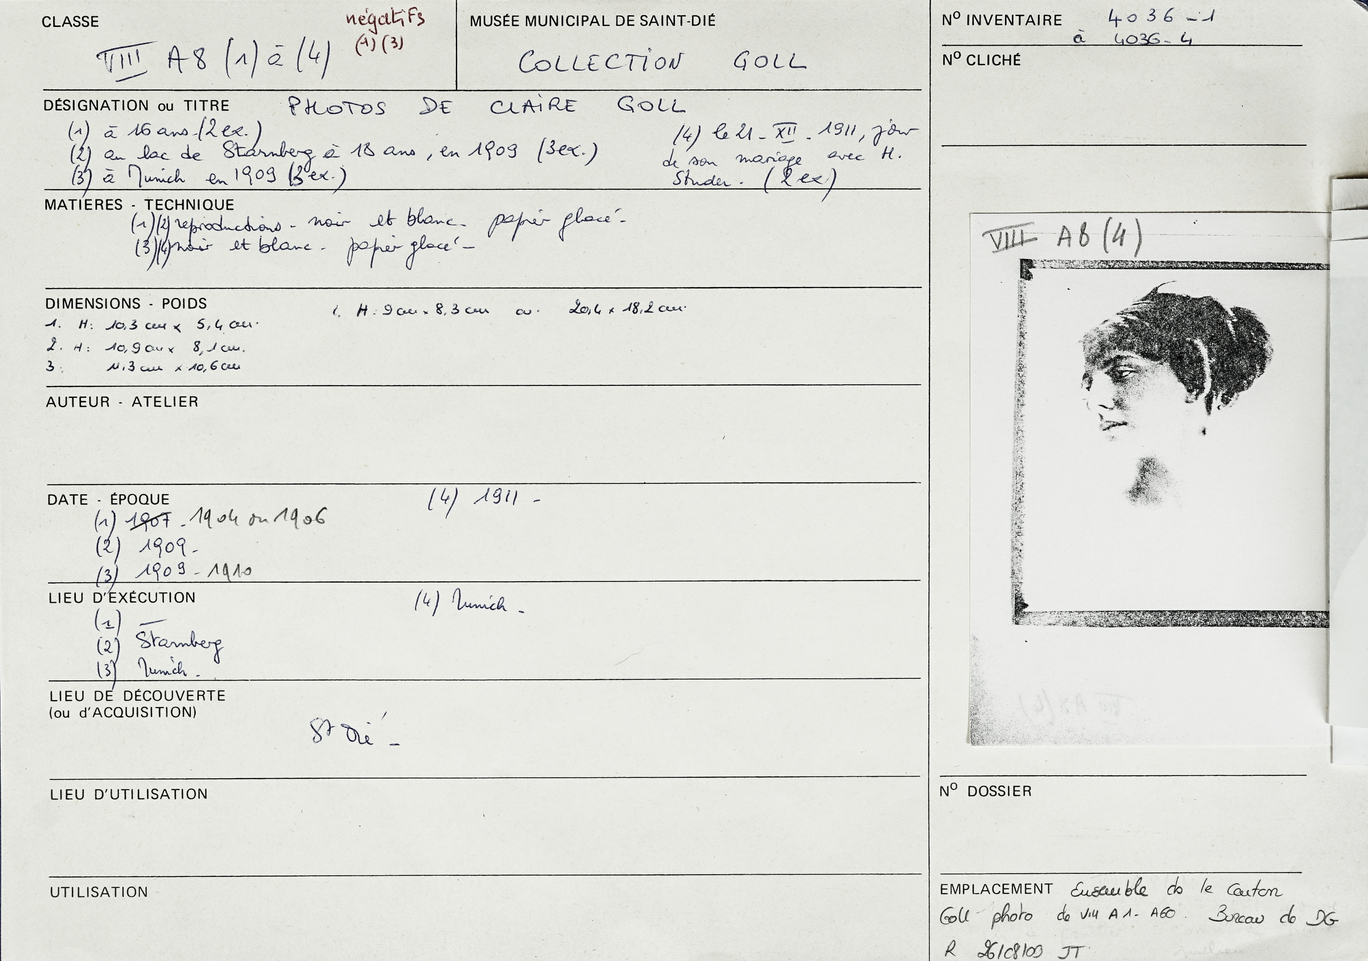 CLASSE
négatifs
(1) (3)
VIII A8 (1) à (4)
MUSÉE MUNICIPAL DE SAINT-DIÉ
COLLECTION GOLL
N° INVENTAIRE 4036-1
à 4036-4
N° CLICHÉ
DÉSIGNATION ou TITRE PHOTOS DE CLAIRE GOLL
(1) à 16 ans (2 ex.)
(2) au lac de Starnberg à 18 ans, en 1909 (3 ex.)
(3) à Munich en 1909 (3 ex.)
(4) le 21 - XII - 1911, jour
de son mariage avec H.
Studer. (2 ex)
MATIÈRES - TECHNIQUE
(1)(2) reproductions - noir et blanc - papier glacé -
(3)(4) noir et blanc - papier glacé -
DIMENSIONS - POIDS
1. H: 10,3 cm x 5,4 cm.
2. H: 10,9 cm x 8,1 cm.
3: 11,3 cm x 10,6 cm
H: 9 cm x 8,3 cm ou 20,4 x 18,2 cm.
AUTEUR - ATELIER
DATE - ÉPOQUE
(1) 1907 - 1904 ou 1906
(2) 1909 -
(3) 1909 - 1910
(4) 1911 -
LIEU D'EXÉCUTION
(1) —
(2) Starnberg
(3) Munich -
(4) Munich -
LIEU DE DÉCOUVERTE
(ou d'ACQUISITION)
St Dié -
LIEU D'UTILISATION
UTILISATION
VIII A8 (4)
N° DOSSIER
EMPLACEMENT Ensemble de le carton
Goll photo de VIII A1 - A60. Bureau de DG
R 26/08/09 JT